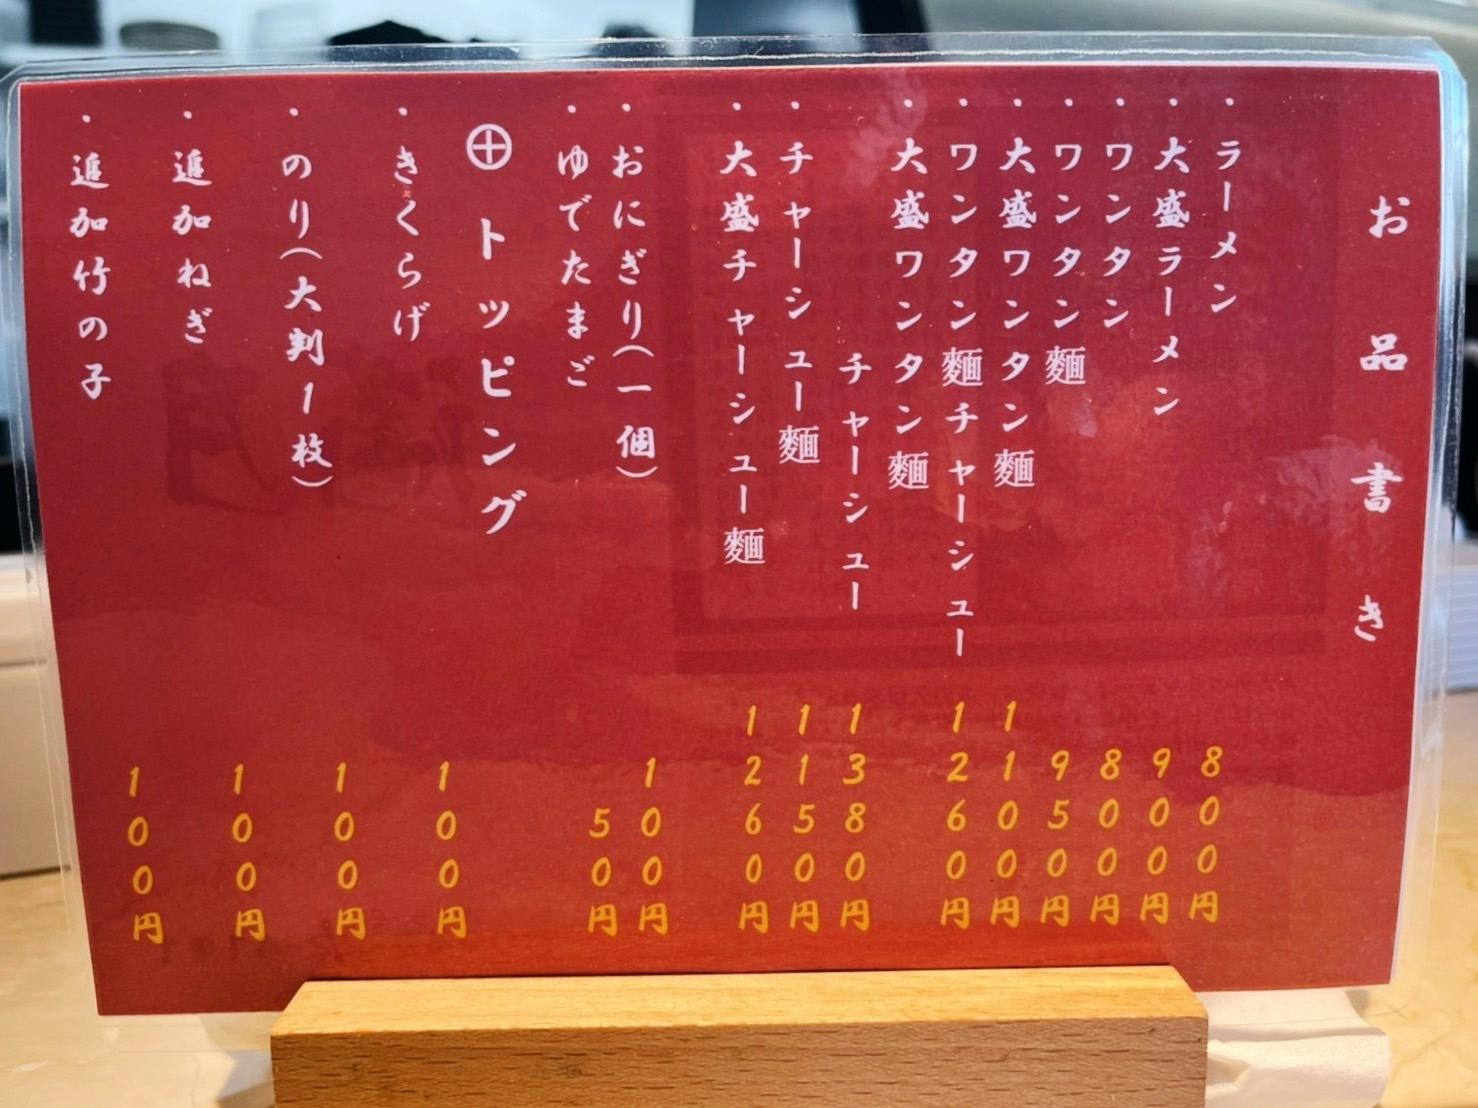 お品書き
・ラーメン 800円
・大盛ラーメン 900円
・ワンタン 800円
・ワンタン麵 950円
・大盛ワンタン麵 1100円
・ワンタン麵チャーシュー 1260円
・大盛ワンタン麵
チャーシュー 1380円
・チャーシュー麵 1150円
・大盛チャーシュー麵 1260円
・おにぎり(一個) 100円
・ゆでたまご 50円
⊕ トッピング
・きくらげ 100円
・のり(大判1枚) 100円
・追加ねぎ 100円
・追加竹の子 100円